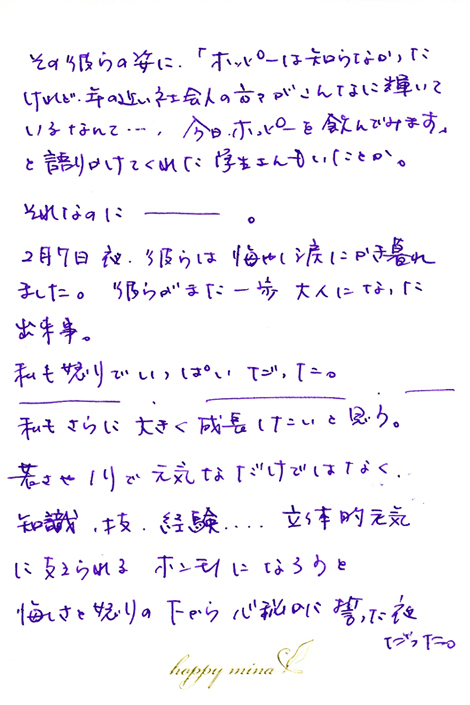 その彼らの姿に、「ホッピーは知らなかった
けれど、年の近い社会人の方々がこんなに輝いて
いるなんて…、今日、ホッピーを飲んでみます」
と語りかけてくれた学生さんもいたことか。
それなのに ――― 。
2月7日夜、彼らは悔やし涙にかき暮れ
ました。彼らがまた一歩大人になった
出来事。
私も怒りでいっぱいだった。
私もさらに大きく成長したいと思う。
若さやノリで元気なだけではなく、
知識、技、経験.... 立体的元気
に支えられるホンモノになろうと
悔しさと怒りの下から心秘めに誓った夜
だった。
hoppy mina